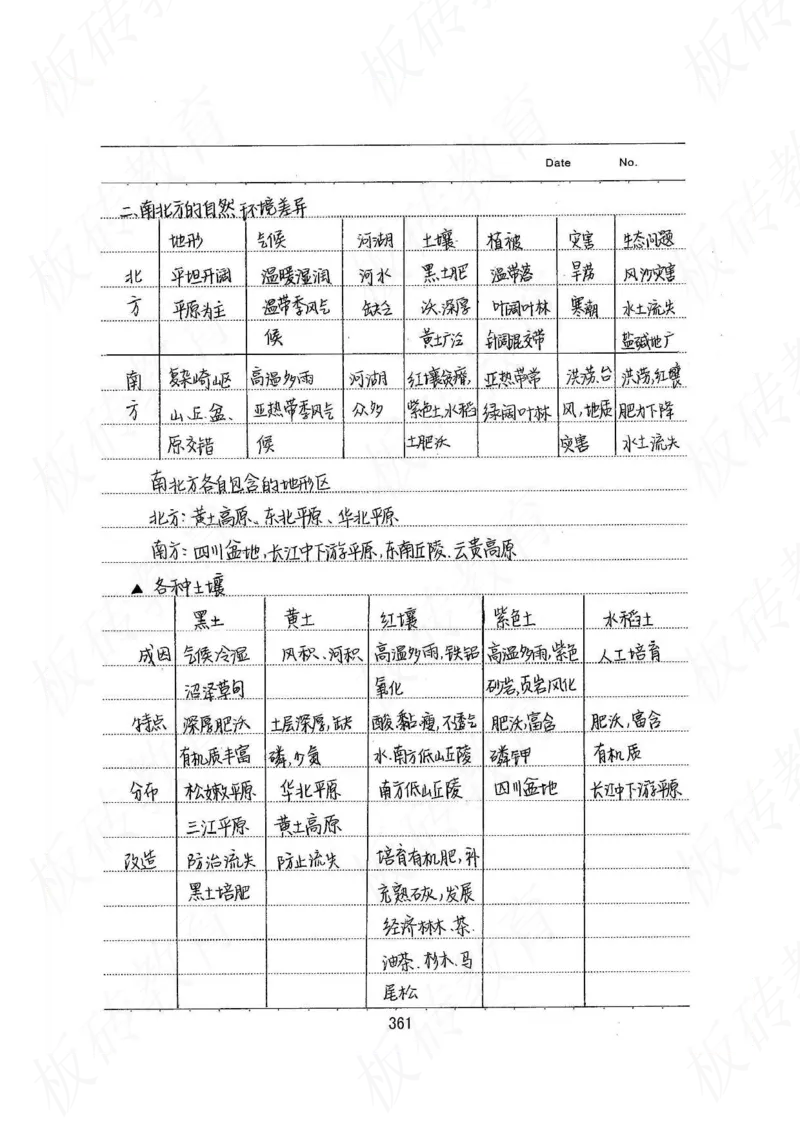 Date No.
二、南北方的自然环境差异
地形 气候 河湖 土壤 植被 灾害 生态问题
北 平坦开阔 温暖湿润 河水 黑土肥 温带落 旱涝 风沙灾害
方 平原为主 温带季风气 缺乏 沃、深厚 叶阔叶林 寒潮 水土流失
候 黄土广泛 针阔混交带 盐碱地广
南 复杂崎山区 高温多雨 河湖 红壤贫瘠, 亚热带常 洪涝、台 洪涝,红壤
方 山、丘、盆、 亚热带季风气 众多 紫色土,水稻 绿阔叶林 风,地质 肥力下降
原交错 候 土肥沃 灾害 水土流失
南北方各自包含的地形区
北方:黄土高原、东北平原、华北平原
南方:四川盆地,长江中下游平原,东南丘陵、云贵高原
▲ 各种土壤
黑土 黄土 红壤 紫色土 水稻土
成因 气候冷湿 风积、河积 高温多雨,铁铝 高温多雨,紫色 人工培育
沼泽草甸 氧化 砂岩,页岩风化
特点 深厚肥沃 土层深厚,缺 酸、黏、瘦,不透气 肥沃,富含 肥沃,富含
有机质丰富 磷,少氮 水、南方低山丘陵 磷钾 有机质
分布 松嫩平原 华北平原 南方低山丘陵 四川盆地 长江中下游平原
三江平原 黄土高原
改造 防治流失 防止流失 培育有机肥,补
黑土培肥 充熟石灰,发展
经济林木、茶、
油茶、杉木、马
尾松
361
板砖教育